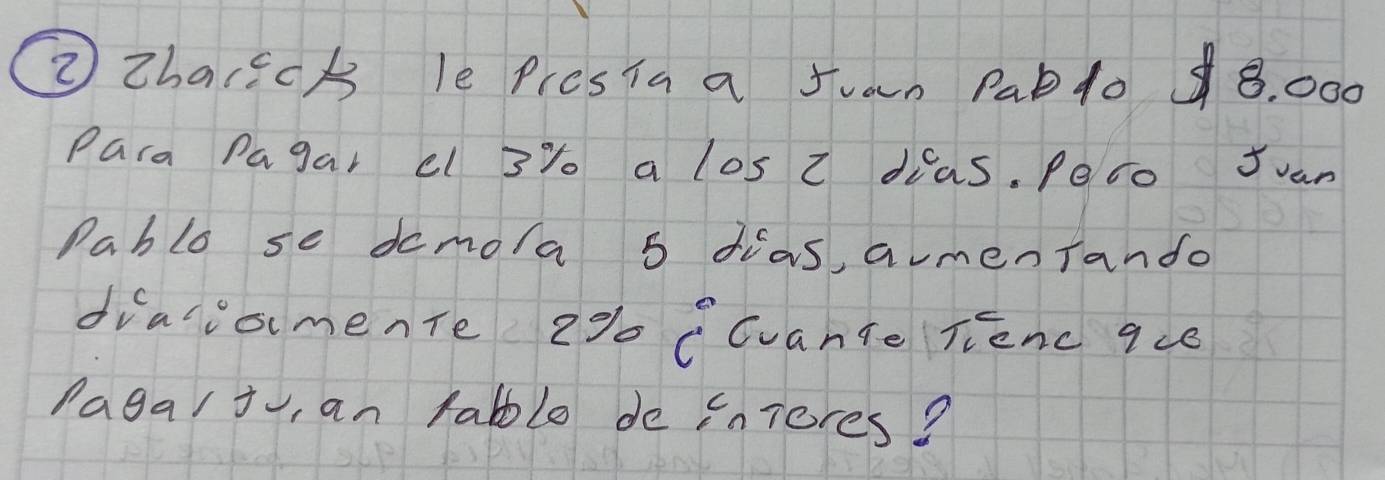 2 Zharick le Presta a Juan Pablo $8.000
Para Pagar el 3% a los 2 días. Pero Juan
Pablo se demora 5 días, aumentando
diariamente 2% ¿Cuante Tiene que
Pagar Juan Pablo de interes?